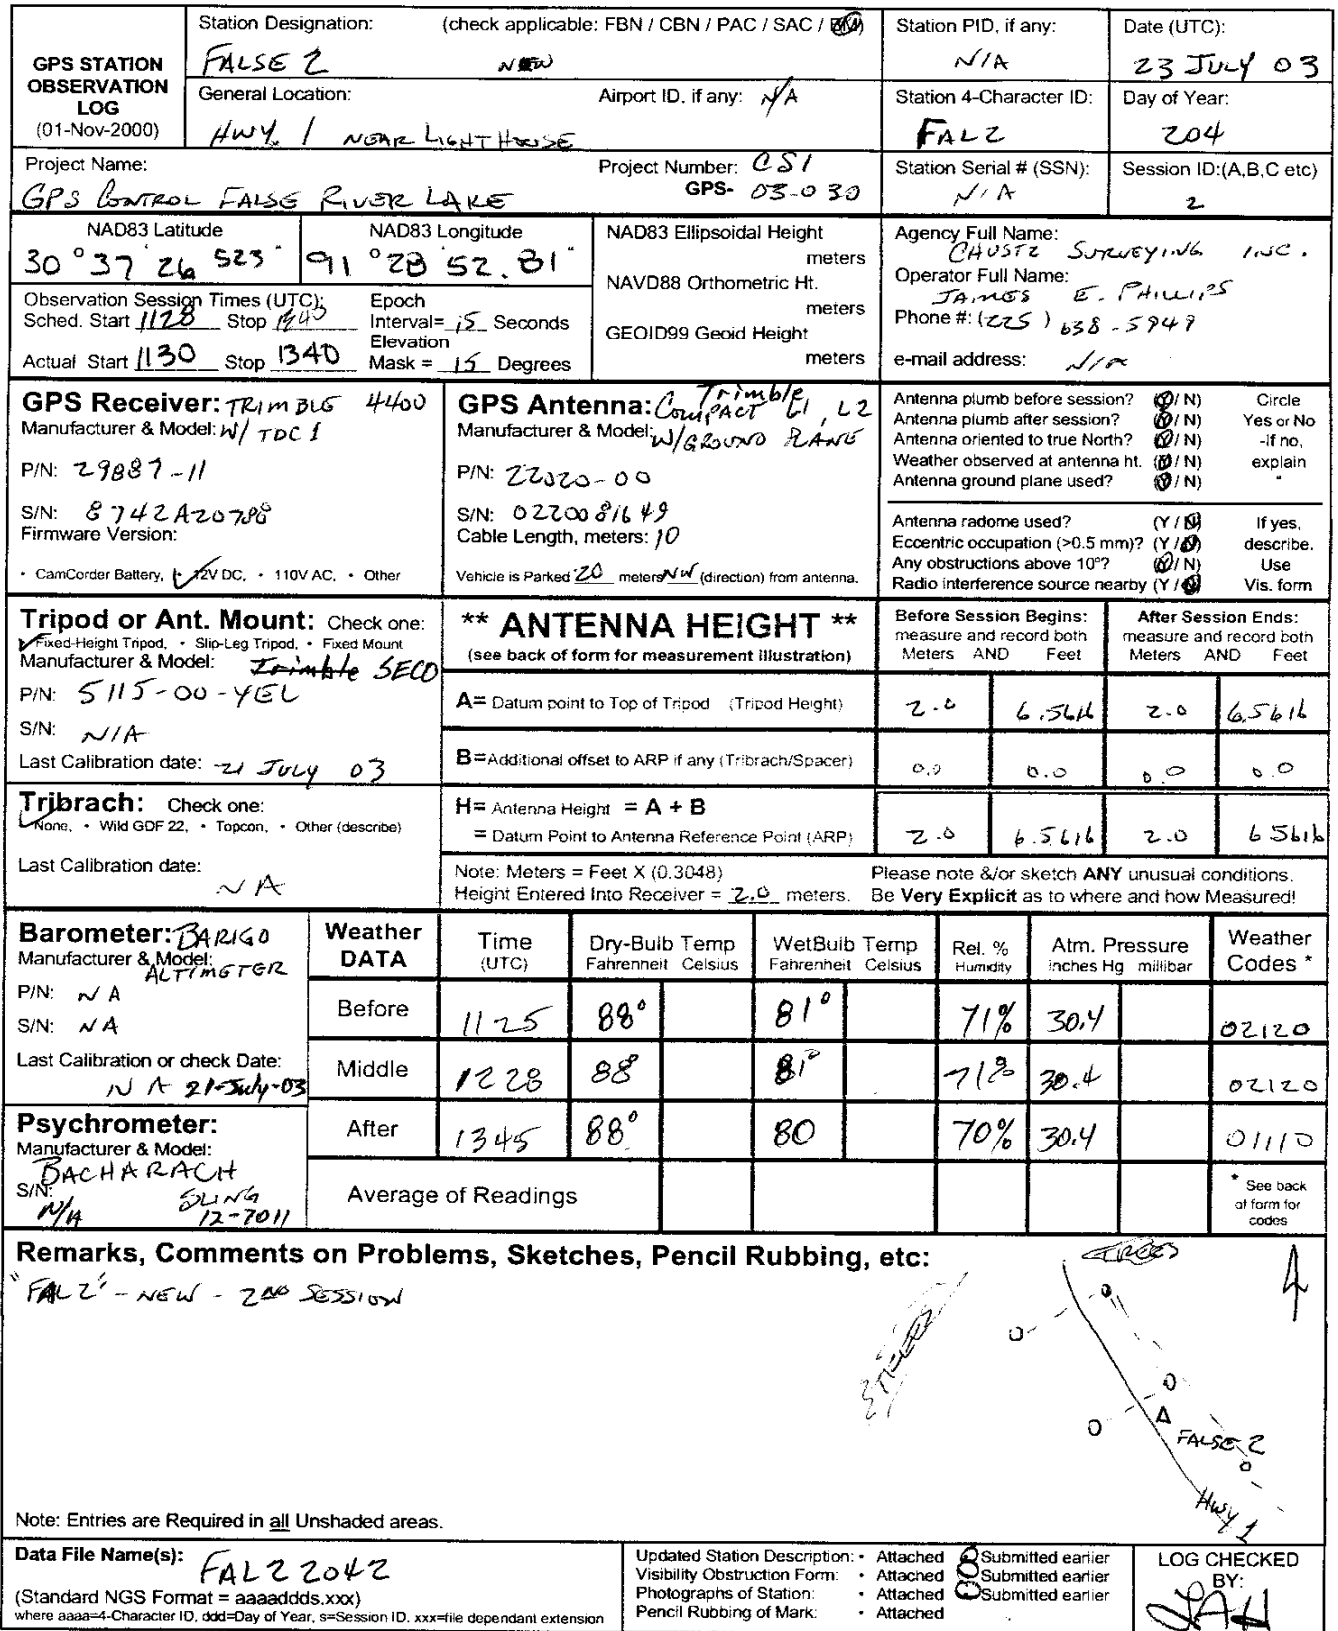 GPS STATION OBSERVATION LOG (01-Nov-2000)
Station Designation: (check applicable: FBN / CBN / PAC / SAC / BM)
FALSE 2 NEW
Station PID, if any:
N/A
Date (UTC):
23 JULY 03
General Location: Airport ID, if any: N/A
HWY. 1 NEAR LIGHTHOUSE
Station 4-Character ID:
FAL2
Day of Year:
204
Project Name:
GPS CONTROL FALSE RIVER LAKE
Project Number: CSI
GPS- 03-030
Station Serial # (SSN):
N/A
Session ID:(A,B,C etc)
2
NAD83 Latitude
30 ° 37 ' 26 523 "
NAD83 Longitude
91 ° 28 ' 52.81 "
NAD83 Ellipsoidal Height
meters
NAVD88 Orthometric Ht.
meters
GEOID99 Geoid Height
meters
Agency Full Name:
CHUSTZ SURVEYING INC.
Operator Full Name:
JAMES E. PHILLIPS
Phone #: (225) 638-5949
e-mail address: N/A
Observation Session Times (UTC):
Sched. Start 1128 Stop 1340
Actual Start 1130 Stop 1340
Epoch
Interval= 15 Seconds
Elevation
Mask = 15 Degrees
GPS Receiver: TRIMBLE 4400
Manufacturer & Model: W/ TDC1
P/N: 29887-11
S/N: 8742A20788
Firmware Version:
• CamCorder Battery, • 12V DC, • 110V AC, • Other
GPS Antenna: Trimble COMPACT L1, L2
Manufacturer & Model: W/GROUND PLANE
P/N: 22020-00
S/N: 0220081649
Cable Length, meters: 10
Vehicle is Parked 20 meters NW (direction) from antenna.
Antenna plumb before session? (Y / N) Circle
Antenna plumb after session? (Y / N) Yes or No
Antenna oriented to true North? (Y / N) -if no,
Weather observed at antenna ht. (Y / N) explain
Antenna ground plane used? (Y / N) "
Antenna radome used? (Y / N) If yes,
Eccentric occupation (>0.5 mm)? (Y / N) describe.
Any obstructions above 10°? (Y / N) Use
Radio interference source nearby (Y / N) Vis. form
Tripod or Ant. Mount: Check one:
Fixed-Height Tripod, • Slip-Leg Tripod, • Fixed Mount
Manufacturer & Model: Trimble SECO
P/N: 5115-00-YEL
S/N: N/A
Last Calibration date: 21 JULY 03
** ANTENNA HEIGHT **
(see back of form for measurement illustration)
Before Session Begins:
measure and record both
Meters AND Feet
After Session Ends:
measure and record both
Meters AND Feet
A= Datum point to Top of Tripod (Tripod Height) 2.0 6.5616 2.0 6.5616
B=Additional offset to ARP if any (Tribrach/Spacer) 0.0 0.0 0.0 0.0
H= Antenna Height = A + B
= Datum Point to Antenna Reference Point (ARP) 2.0 6.5616 2.0 6 5616
Tribrach: Check one:
None, • Wild GDF 22, • Topcon, • Other (describe)
Last Calibration date:
N A
Note: Meters = Feet X (0.3048)
Height Entered Into Receiver = 2.0 meters.
Please note &/or sketch ANY unusual conditions.
Be Very Explicit as to where and how Measured!
Barometer: BARIGO
Manufacturer & Model: ALTIMETER
P/N: N A
S/N: N A
Last Calibration or check Date:
N A 21-July-03
Psychrometer:
Manufacturer & Model:
BACHARACH
S/N: SLING
N/A 12-7011
Weather DATA
Time (UTC)
Dry-Bulb Temp
Fahrenheit Celsius
WetBulb Temp
Fahrenheit Celsius
Rel. % Humidity
Atm. Pressure
inches Hg millibar
Weather Codes *
Before 1125 88° 81° 71% 30.4 02120
Middle 1228 88 81° 71% 30.4 02120
After 1345 88° 80 70% 30.4 01110
Average of Readings
* See back of form for codes
Remarks, Comments on Problems, Sketches, Pencil Rubbing, etc:
"FAL2" - NEW - 2ND SESSION
TREES
TREES
FALSE 2
Hwy 1
Note: Entries are Required in all Unshaded areas.
Data File Name(s): FAL22042
(Standard NGS Format = aaaaddds.xxx)
where aaaa=4-Character ID, ddd=Day of Year, s=Session ID, xxx=file dependant extension
Updated Station Description: • Attached Submitted earlier
Visibility Obstruction Form: • Attached Submitted earlier
Photographs of Station: • Attached Submitted earlier
Pencil Rubbing of Mark: • Attached
LOG CHECKED BY: